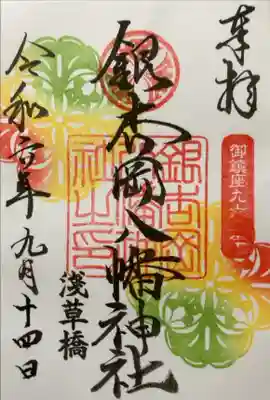 奉拝
御鎮座九
銀杏岡八幡神社
浅草橋
令和六年九月十四日
銀杏岡
社之印